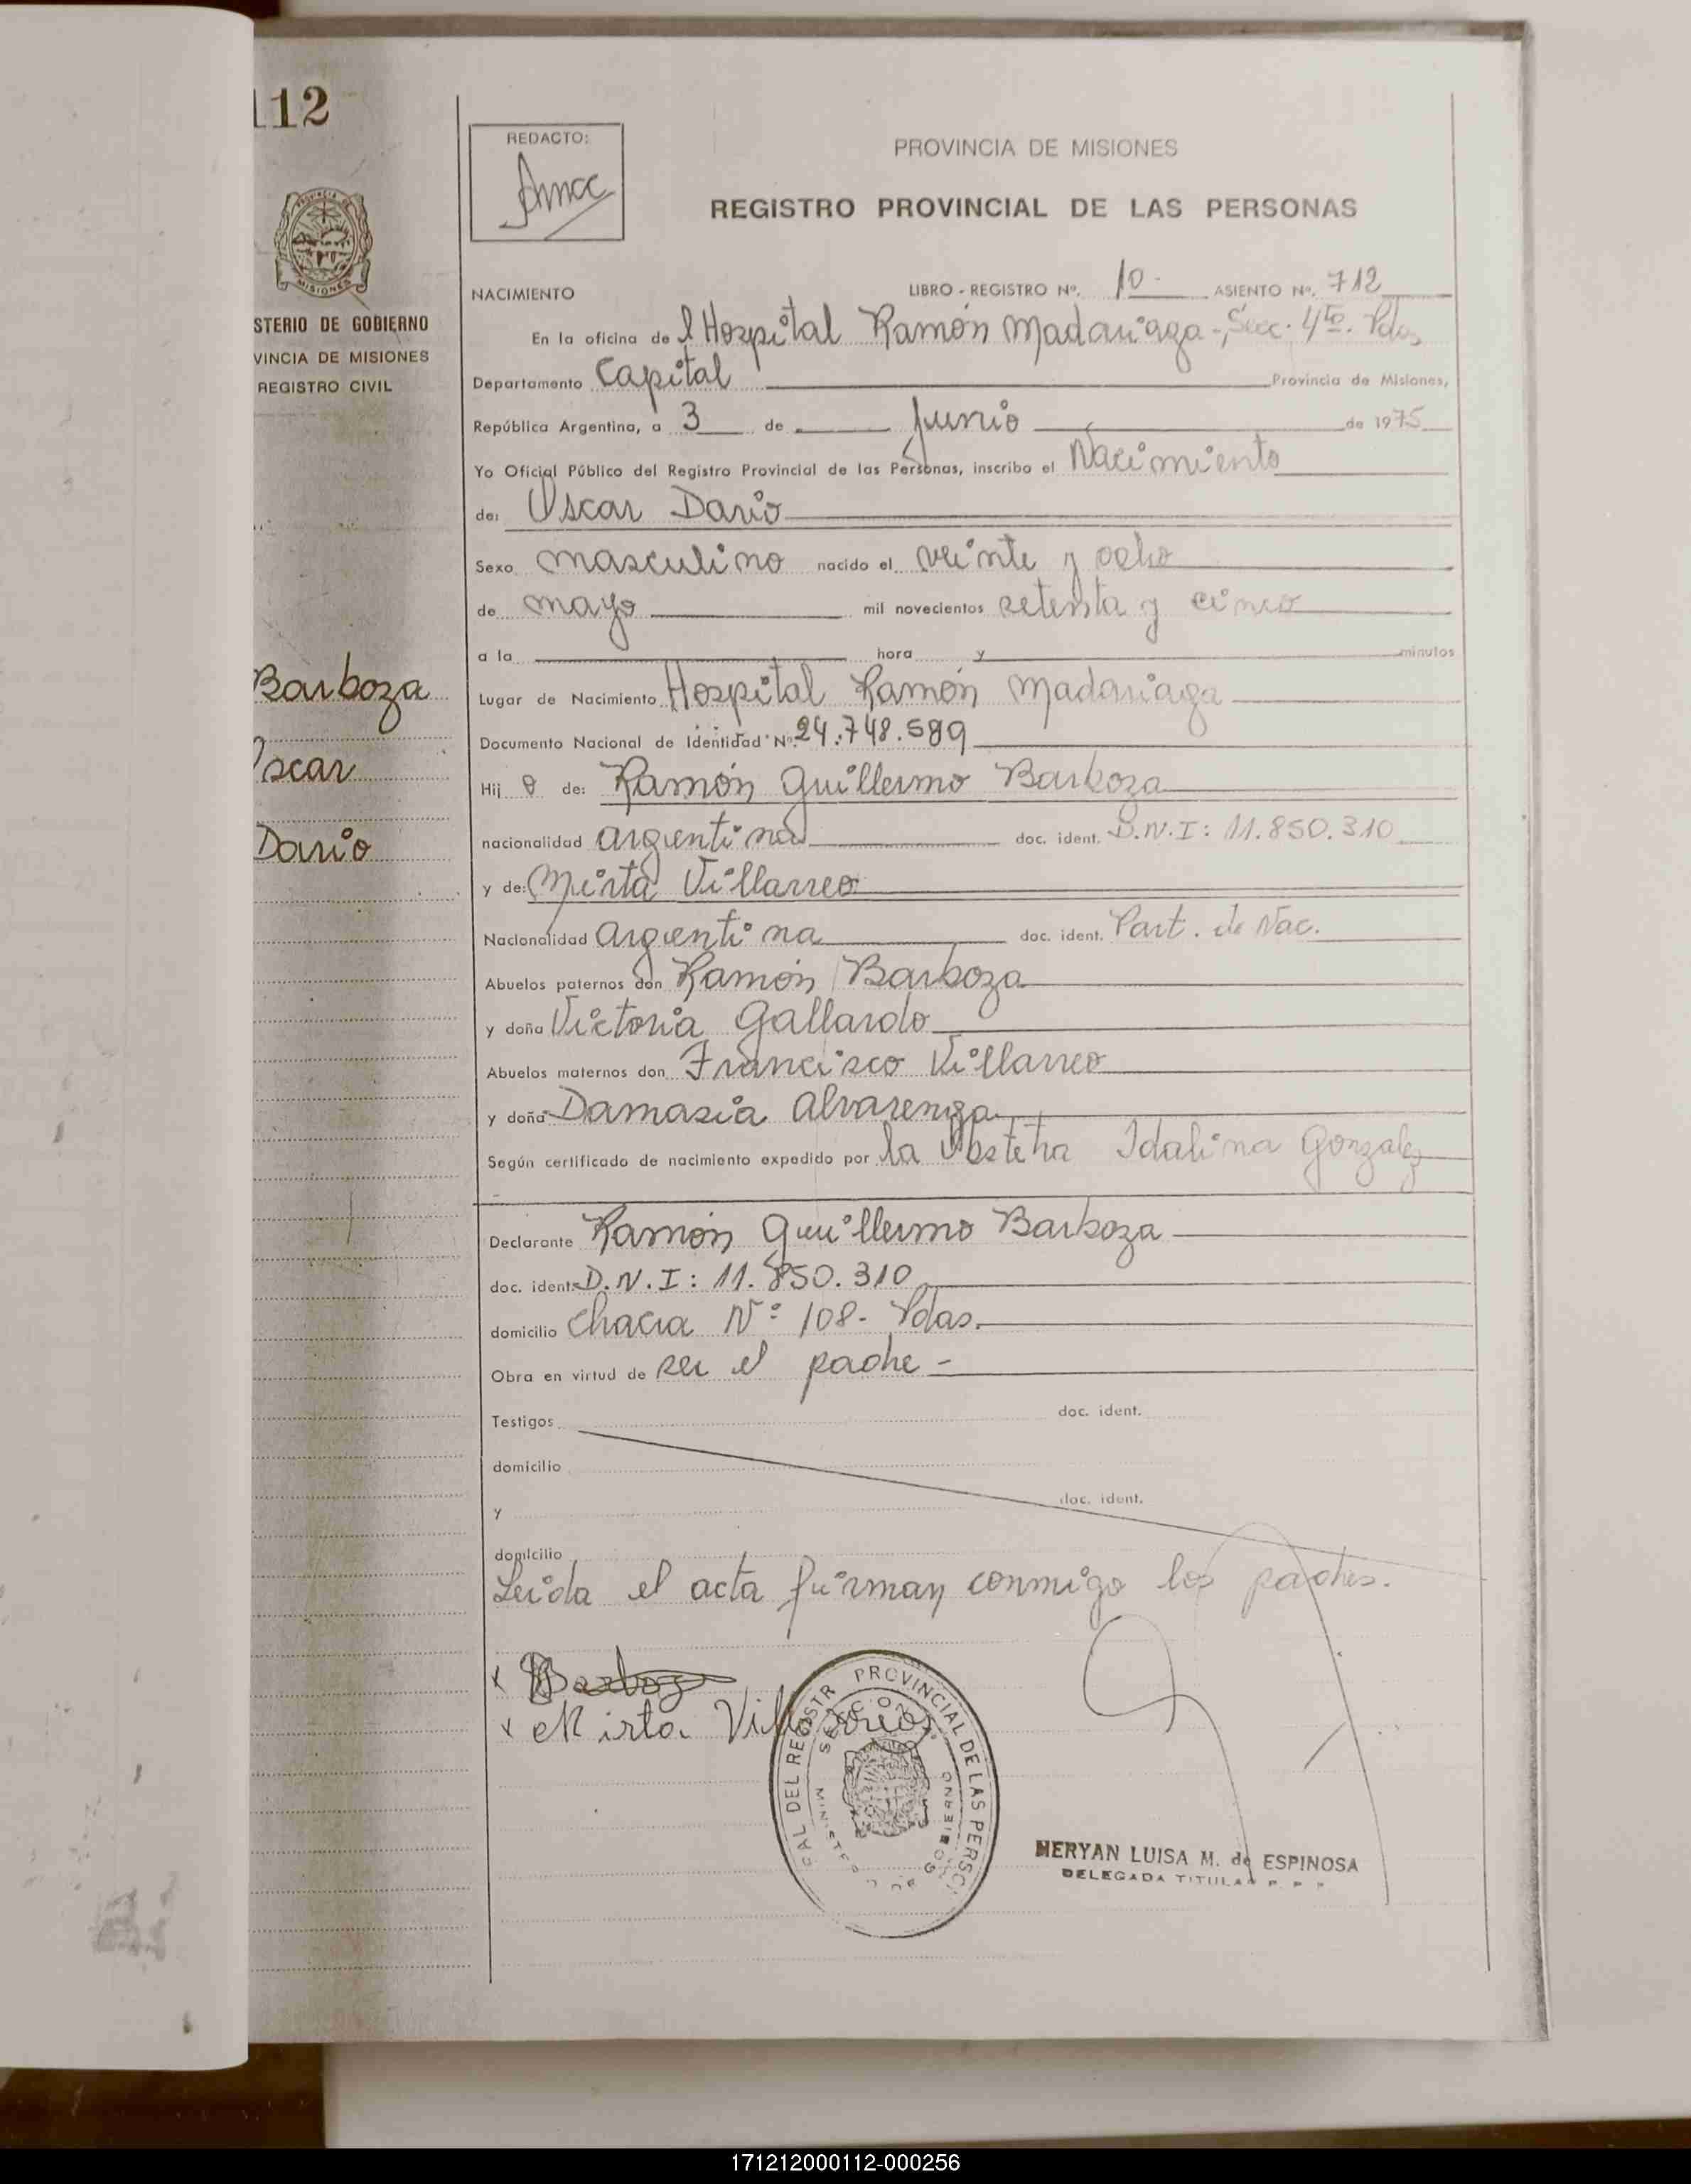 112
REDACTO:
PROVINCIA DE MISIONES
REGISTRO PROVINCIAL DE LAS PERSONAS
MISIONES
STERIO DE GOBIERNO
VINCIA DE MISIONES
REGISTRO CIVIL
NACIMIENTO LIBRO - REGISTRO Nº. 10 - ASIENTO Nº. 712
En la oficina de l Hospital Ramón Madariaga -, Secc. 4ta. Pdas
Departamento Capital Provincia de Misiones,
República Argentina, a 3 de Junio de 1975
Yo Oficial Público del Registro Provincial de las Personas, inscribo el Nacimiento
de: Oscar Dario
Sexo masculino nacido el veinte y ocho
de mayo mil novecientos setenta y cinco
a la hora y minutos
Barboza
Lugar de Nacimiento Hospital Ramón Madariaga
Documento Nacional de Identidad Nº. 24.748.589
Oscar
Hij o de: Ramón Guillermo Barboza
Dario
nacionalidad argentina doc. ident. D.N.I: 11.850.310
y de: Mirta Villarreo
Nacionalidad argentina doc. ident. Part. de Nac.
Abuelos paternos don Ramón Barboza
y doña Victoria Gallardo
Abuelos maternos don Francisco Villarreo
y doña Damasia Alvarenga
Según certificado de nacimiento expedido por la Obstetra Idalina Gonzalez
Declarante Ramón Guillermo Barboza
doc. ident. D.N.I: 11.850.310
domicilio Chacra Nº 108- Pdas.
Obra en virtud de ser el padre -
Testigos doc. ident.
domicilio
y doc. ident.
domicilio
Leida el acta firman conmigo los padres.
x Barboza
x Mirta Villarreo
PROVINCIAL DE LAS PERSO
CAL DEL REGISTR
SECCION
MERYAN LUISA M. de ESPINOSA
DELEGADA TITULAR
171212000112-000256